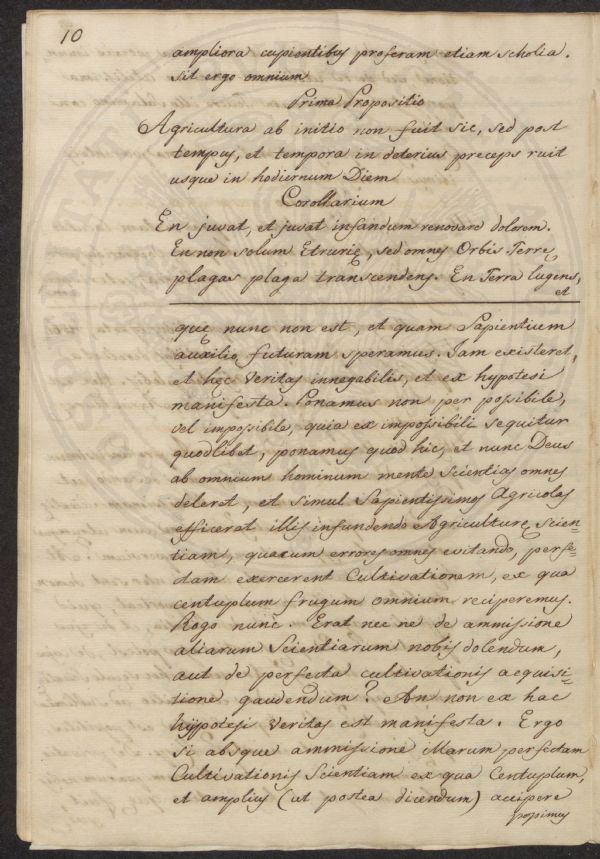 10
ampliora cupientibus proferam etiam scholia.
sit ergo omnium
Prima Propositio
Agricultura ab initio non fuit sic, sed post
tempus, et tempora in deterius preceps ruit
usque in hodiernum Diem
Corollarium
En juvat, et juvat infandum renovare dolorem.
En non solum Etrurię, sed omnes Orbis Terrę
plagas plaga transcendens. En Terra lugens,
et
quę nunc non est, et quam Sapientium
auxilio futuram speramus. Iam existeret,
et hęc veritas innegabilis, et ex hypotesi
manifesta. Ponamus non per possibile,
vel impossibile, quia ex impossibili sequitur
quodlibet, ponamus quod hic, et nunc Deus
ab omnium hominum mente scientias omnes
deleret, et simul Sapientissimos Agricolas
efficeret illis infundendo Agriculturę scien-
tiam, quarum errores omnes evitando, perfe-
ctam exercerent Cultivationem, ex qua
centuplum frugum omnium reciperemus.
Rogo nunc. Erat nec ne de ammissione
aliarum Scientiarum nobis dolendum,
aut de perfecta cultivationis aequisi-
tione gaudendum? An non ex hac
hypotesi veritas est manifesta. Ergo
si absque ammissione illarum perfectam
Cultivationis Scientiam ex qua Centuplum,
et amplius (ut postea dicendum) accipere
possimus